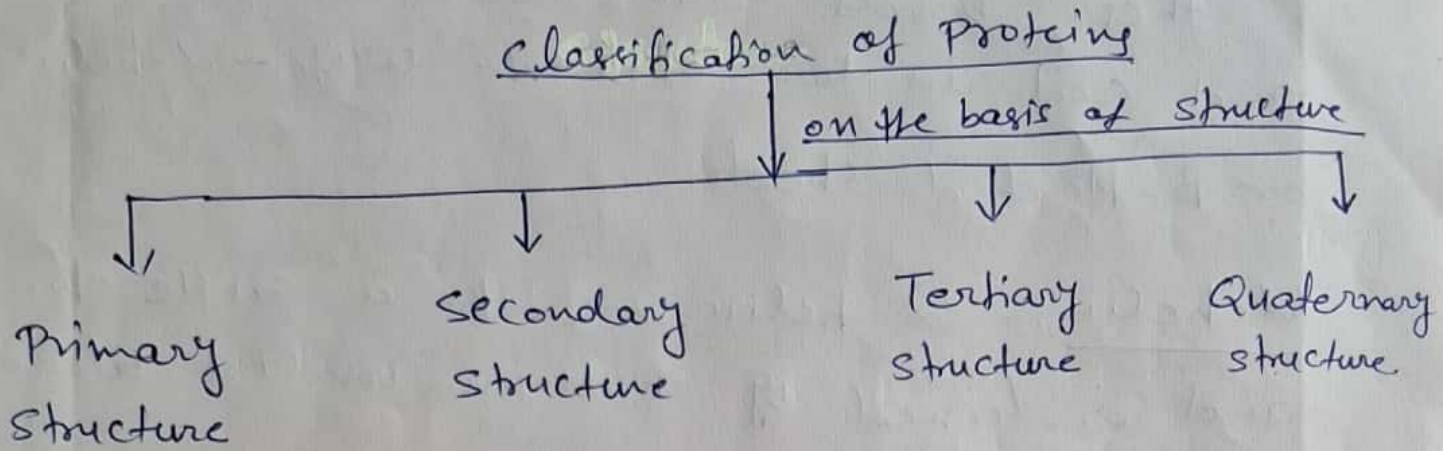 Classification of Proteins
on the basis of structure
Primary
structure
Secondary
structure
Tertiary
structure
Quaternary
structure